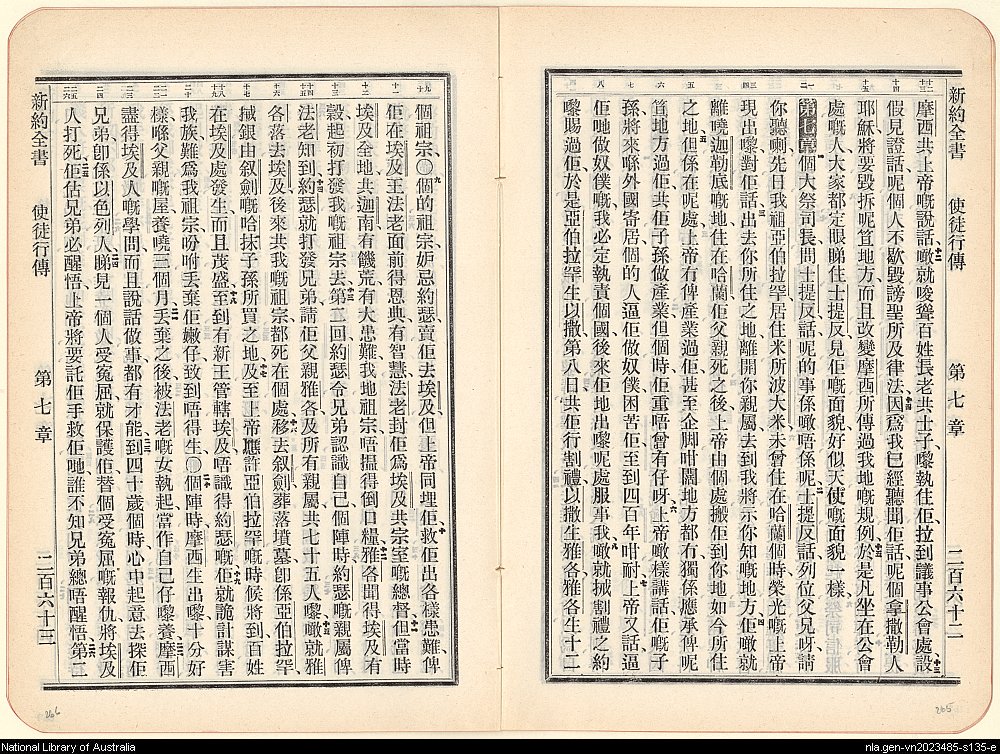 新約全書 使徒行傳 第七章 二百六十二
摩西共上帝嘅說話噉就唆聳百姓長老共士子嚟執住佢拉到議事公會處設
假見證話呢個人不歇毀謗聖所及律法因爲我已經聽聞佢話呢個拿撒勒人
耶穌將要毀拆呢笪地方而且改變摩西所傳過我地嘅規例於是凡坐在公會
處嘅人大家都定眼睇住士提反見佢嘅面貌好似天使嘅面貌一樣
第七章 個大祭司長問士提反話呢的事係噉唔係呢士提反話列位父兄呀請
你聽喇先日我祖亞伯拉罕居住米所波大米未曾住在哈蘭個時榮光嘅上帝
現出嚟對佢話出去你所住之地離開你親屬去到我將示你知嘅地方佢噉就
離嘵迦勒底嘅地住在哈蘭佢父親死之後上帝由個處搬佢到你地如今所住
之地但係在呢處上帝冇俾產業過佢甚至企脚咁闊地方都冇獨係應承俾呢
笪地方過佢共佢子孫做產業但個時佢重唔曾有仔呀上帝噉樣講話佢嘅子
孫將來喺外國寄居個的人逼佢做奴僕困苦佢至到四百年咁耐上帝又話逼
佢哋做奴僕嘅我必定執責個國後來佢地出嚟呢處服事我噉就𢬿割禮之約
嚟賜過佢於是亞伯拉罕生以撒第八日共佢行割禮以撒生雅各雅各生十二
個祖宗〇個的祖宗妒忌約瑟賣佢去埃及但上帝同埋佢救佢出各樣患難俾
佢在埃及王法老面前得恩典有智慧法老封佢爲埃及共宗室嘅總督但當時
埃及全地共迦南有饑荒有大患難我地祖宗唔搵得倒口糧雅各聞得埃及有
穀起初打發我嘅祖宗去第二回約瑟令兄弟認識自己個陣時約瑟嘅親屬俾
法老知到約瑟就打發兄弟請佢父親雅各及所有親屬共七十五人嚟噉就雅
各落去埃及後來共我嘅祖宗都死在個處移去叙劍葬落墳墓卽係亞伯拉罕
𢬿銀由叙劍嘅哈抹子孫所買之地及至上帝應許亞伯拉罕嘅時候將到百姓
在埃及處發生而且茂盛至到有新王管轄埃及唔識得約瑟嘅佢就詭計謀害
我族難爲我祖宗吩咐丟棄佢嫩仔致到唔得生〇個陣時摩西生出嚟十分好
樣喺父親嘅屋養嘵三個月丟棄之後被法老嘅女執起當作自己仔嚟養摩西
盡得埃及人嘅學問而且說話做事都有才能到四十歲個時心中起意去探佢
兄弟卽係以色列人睇見一個人受冤屈就保護佢替個受冤屈嘅報仇將埃及
人打死佢估兄弟必醒悟上帝將要託佢手救佢哋誰不知兄弟總唔醒悟第二
新約全書 使徒行傳 第七章 二百六十三
266
265
National Library of Australia
nla.gen-vn2023485-s135-e